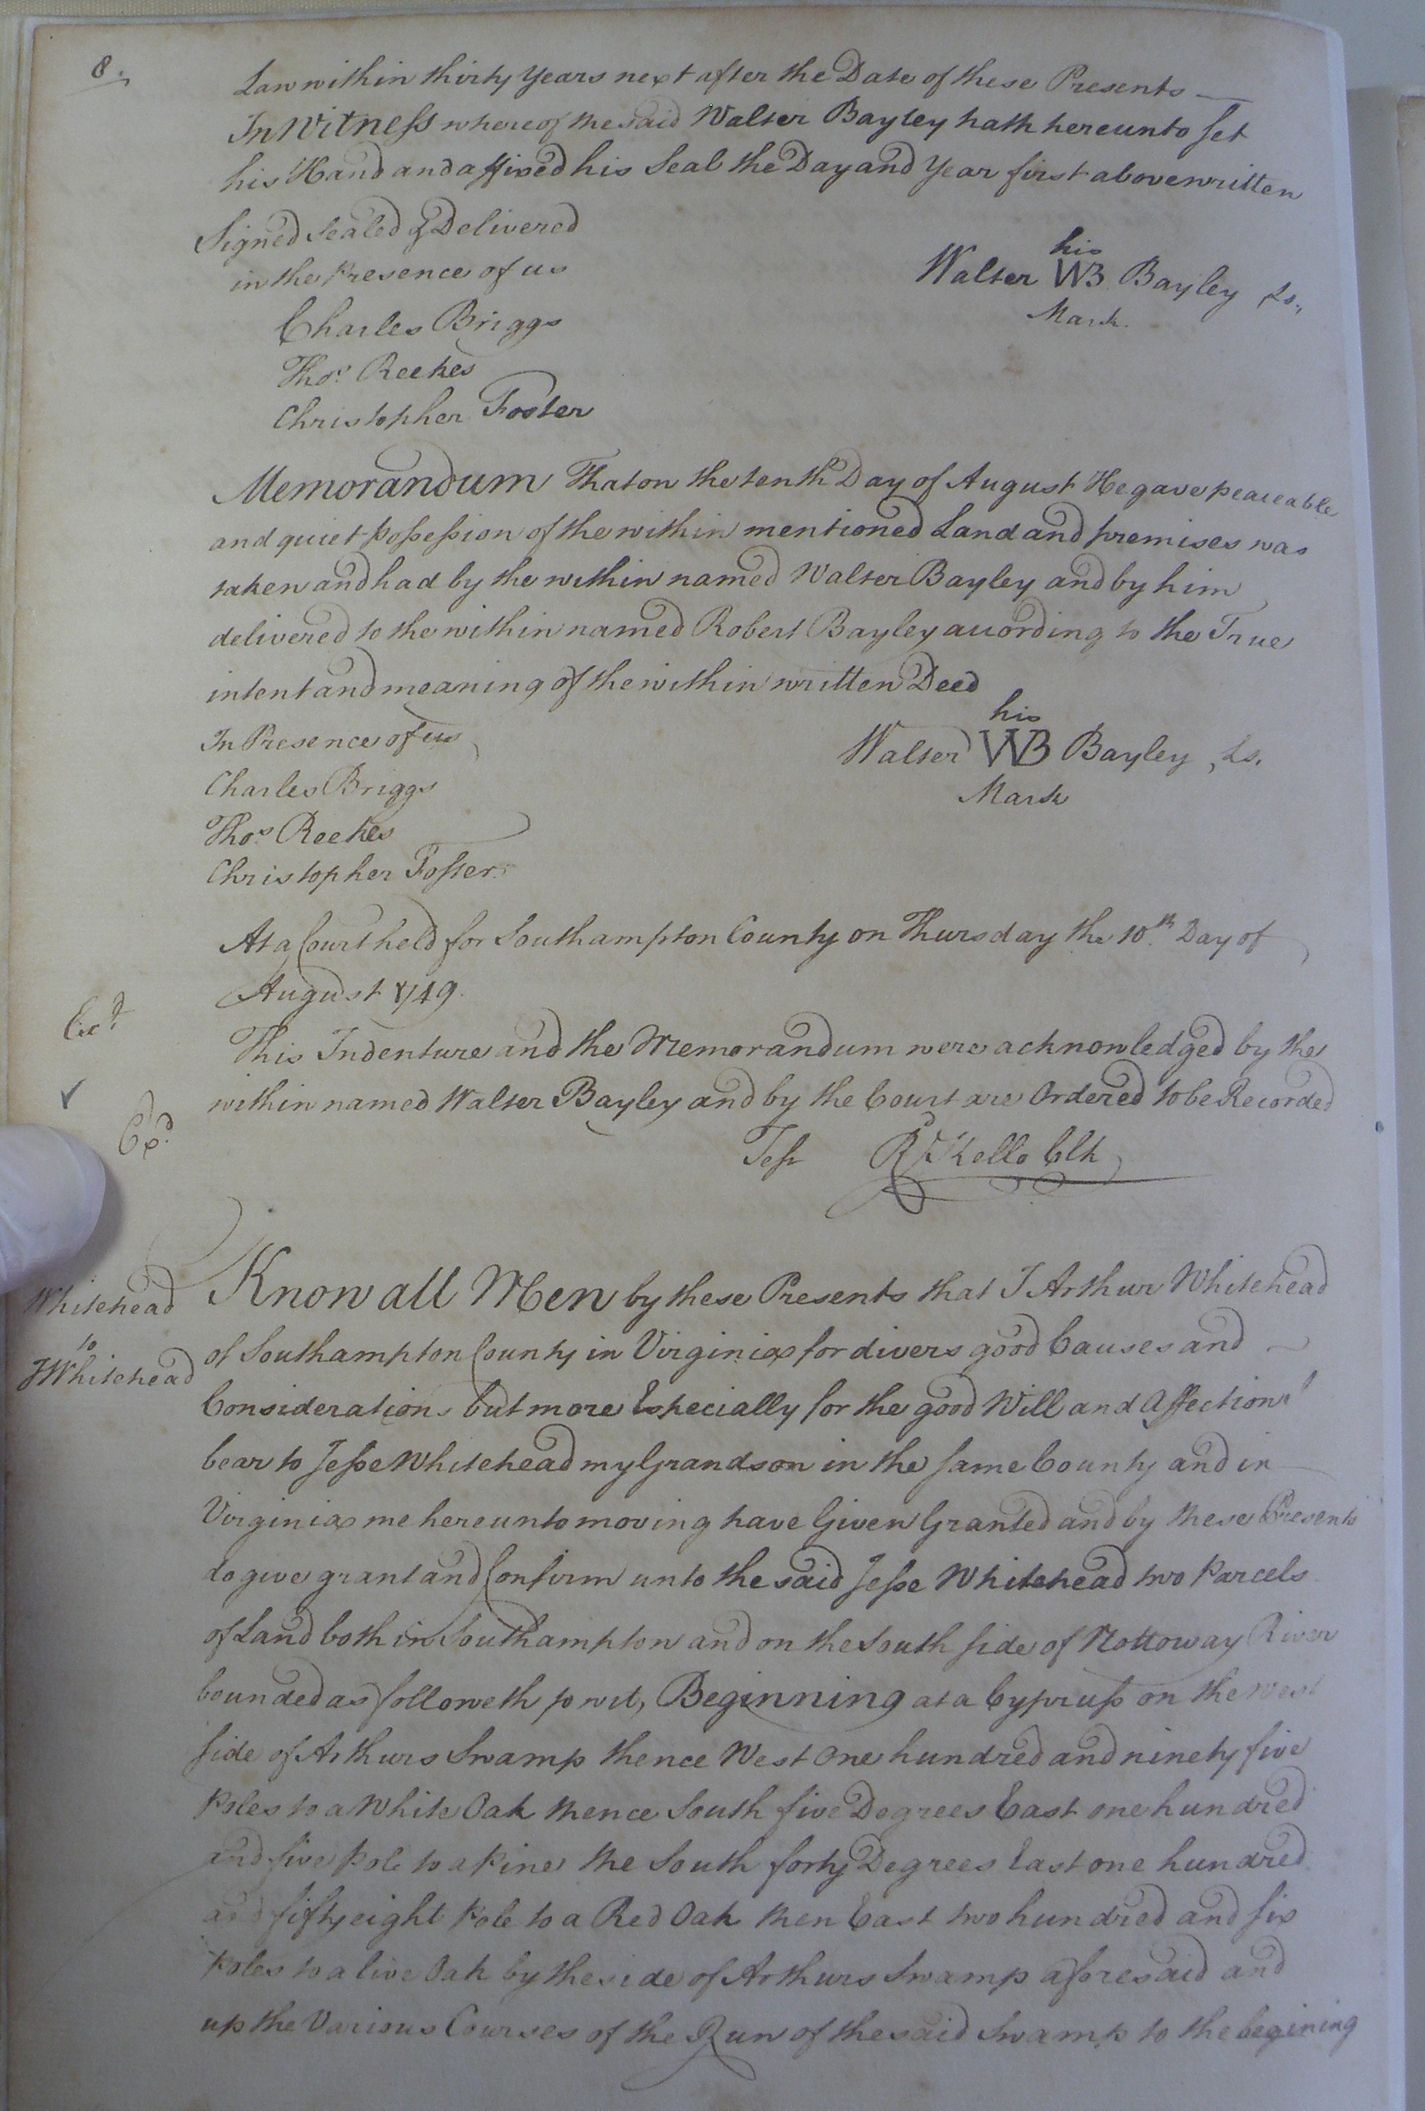 8.
Law within thirty Years next after the Date of these Presents
In Witness whereof the said Walter Bayley hath hereunto set
his Hand and affixed his Seal the Day and Year first above written
Signed Sealed & Delivered
in the Presence of us
his
Walter WB Bayley Ls.
Mark.
Charles Briggs
Thos. Reekes
Christopher Foster
Memorandum That on the tenth Day of August He gave peaceable
and quiet possession of the within mentioned Land and premises was
taken and had by the within named Walter Bayley and by him
delivered to the within named Robert Bayley according to the True
intent and meaning of the within written Deed
In Presence of us
his
Walter WB Bayley Ls.
Mark
Charles Briggs
Thos. Reekes
Christopher Foster
At a Court held for Southampton County on Thursday the 10th. Day of
August 1749.
This Indenture and the Memorandum were acknowledged by the
within named Walter Bayley and by the Court are Ordered to be Recorded
Exd.
Test Rd. Kello Clk
Whitehead
to
J Whitehead
Know all Men by these Presents that I Arthur Whitehead
of Southampton County in Virginia for divers good Causes and
Consideration but more Especially for the good Will and Affection I
bear to Jesse Whitehead my Grandson in the same County and in
Virginia me hereunto moving have Given Granted and by these Presents
do give grant and Confirm unto the said Jesse Whitehead two Parcels
of Land both in Southampton and on the South side of Nottoway River
bounded as followeth to wit, Beginning at a Cypruss on the West
side of Arthurs Swamp thence West one hundred and ninety five
Poles to a White Oak thence South five Degrees East one hundred
and five Pole to a Pine the South forty Degrees East one hundred
and fifty eight Pole to a Red Oak then East two hundred and six
Poles to a live Oak by the side of Arthurs Swamp aforesaid and
up the Various Courses of the Run of the said Swamp to the begining